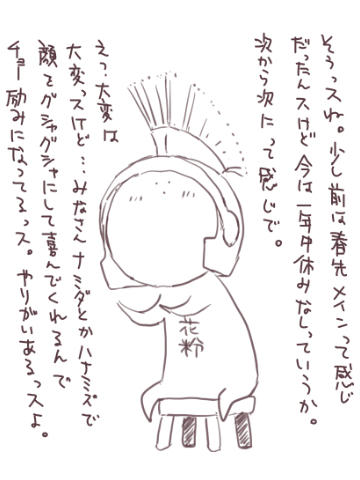 そうっスね。少し前は春先メインって感じ
だったんスけど今は一年中休みなしっていうか。
次から次にって感じで。
えっ、大変は
大変っスけど…みなさんナミダとかハナミズで
顔をグシャグシャにして喜んでくれるんで
チョー励みになってるっス。やりがいあるっスよ。
花粉